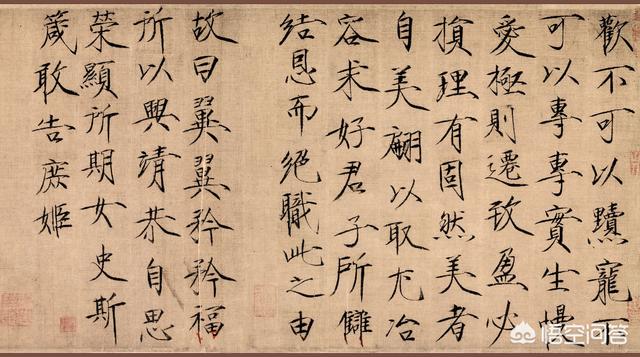 歡不可以黷寵不
可以專專實生慢
愛極則遷致盈必
損理有固然美者
自美翩以取尤冶
容求好君子所讎
結恩而絕職此之由
故曰翼翼矜矜福
所以興靖恭自思
榮顯所期女史斯
箴敢告庶姬
悟空问答